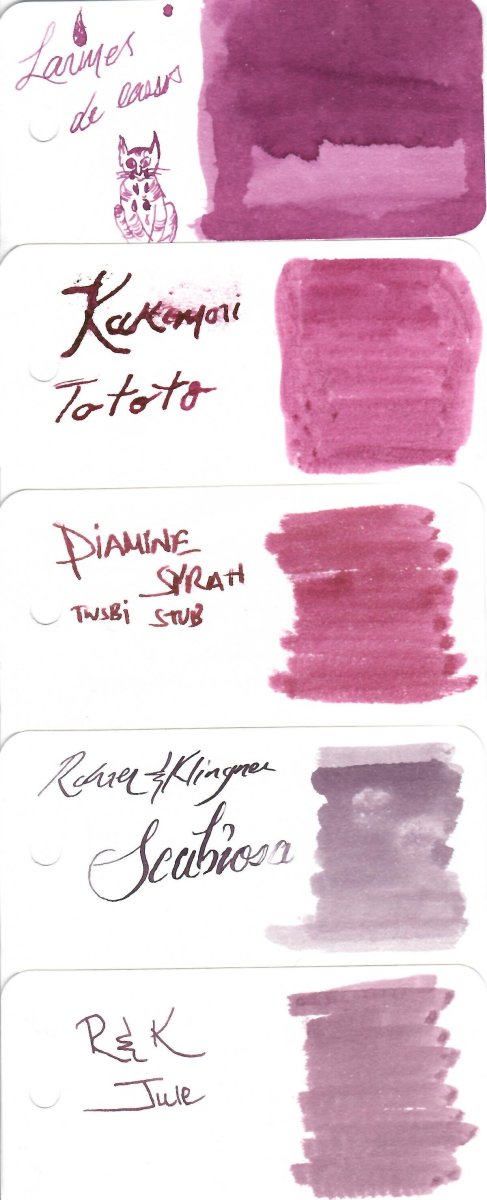 Larmes
de cassis
Kakimori
Tototo
DIAMINE
SYRAH
TWSBi STUB
Rohrer & Klingner
Scabiosa
R & K
Jule